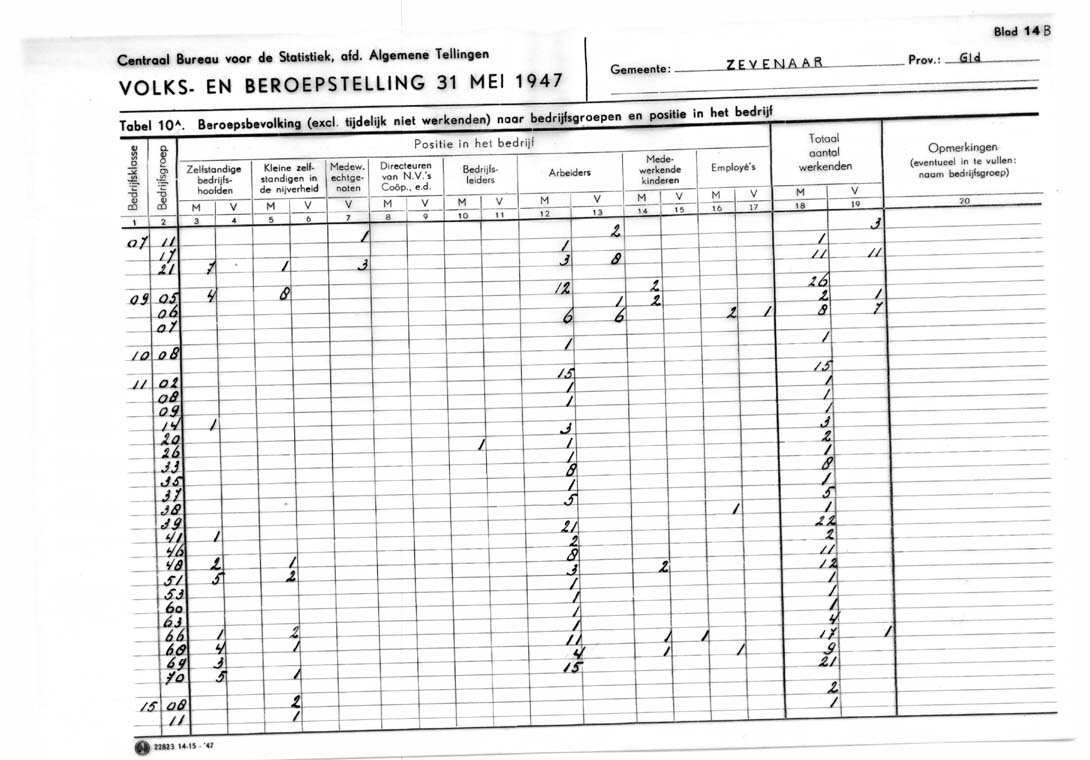 Blad 14 B
Centraal Bureau voor de Statistiek, afd. Algemene Tellingen
VOLKS- EN BEROEPSTELLING 31 MEI 1947
Gemeente: ZEVENAAR Prov.: Gld
Tabel 10^A. Beroepsbevolking (excl. tijdelijk niet werkenden) naar bedrijfsgroepen en positie in het bedrijf
Bedrijfsklasse
Bedrijfsgroep
Positie in het bedrijf
Zelfstandige
bedrijfs-
hoofden
Kleine zelf-
standigen in
de nijverheid
Medew.
echtge-
noten
Directeuren
van N.V.'s
Coöp., e.d.
Bedrijfs-
leiders
Arbeiders
Mede-
werkende
kinderen
Employé's
Totaal
aantal
werkenden
Opmerkingen
(eventueel in te vullen:
naam bedrijfsgroep)
M V M V V M V M V M V M V M V M V
1 2 3 4 5 6 7 8 9 10 11 12 13 14 15 16 17 18 19 20
07 11 1 2 3
17 1 1
21 7 1 3 3 8 11 11
09 05 4 8 12 2 26
06 1 2 2 1
07 6 6 2 1 8 7
10 08 1 1
11 02 15 15
08 1 1
09 1 1
14 1 1
20 3 3
26 1 1 2
33 1 1
35 8 8
37 1 1
38 5 5
39 1 1
41 1 21 22
46 2 2
48 2 1 8 11
51 5 2 3 2 12
53 1 1
60 1 1
63 1 1
66 1 2 1 4
68 4 1 11 1 1 17 1
69 3 4 1 1 9
70 5 1 15 21
15 08 2 2
11 1 1
22823 14-15 - '47